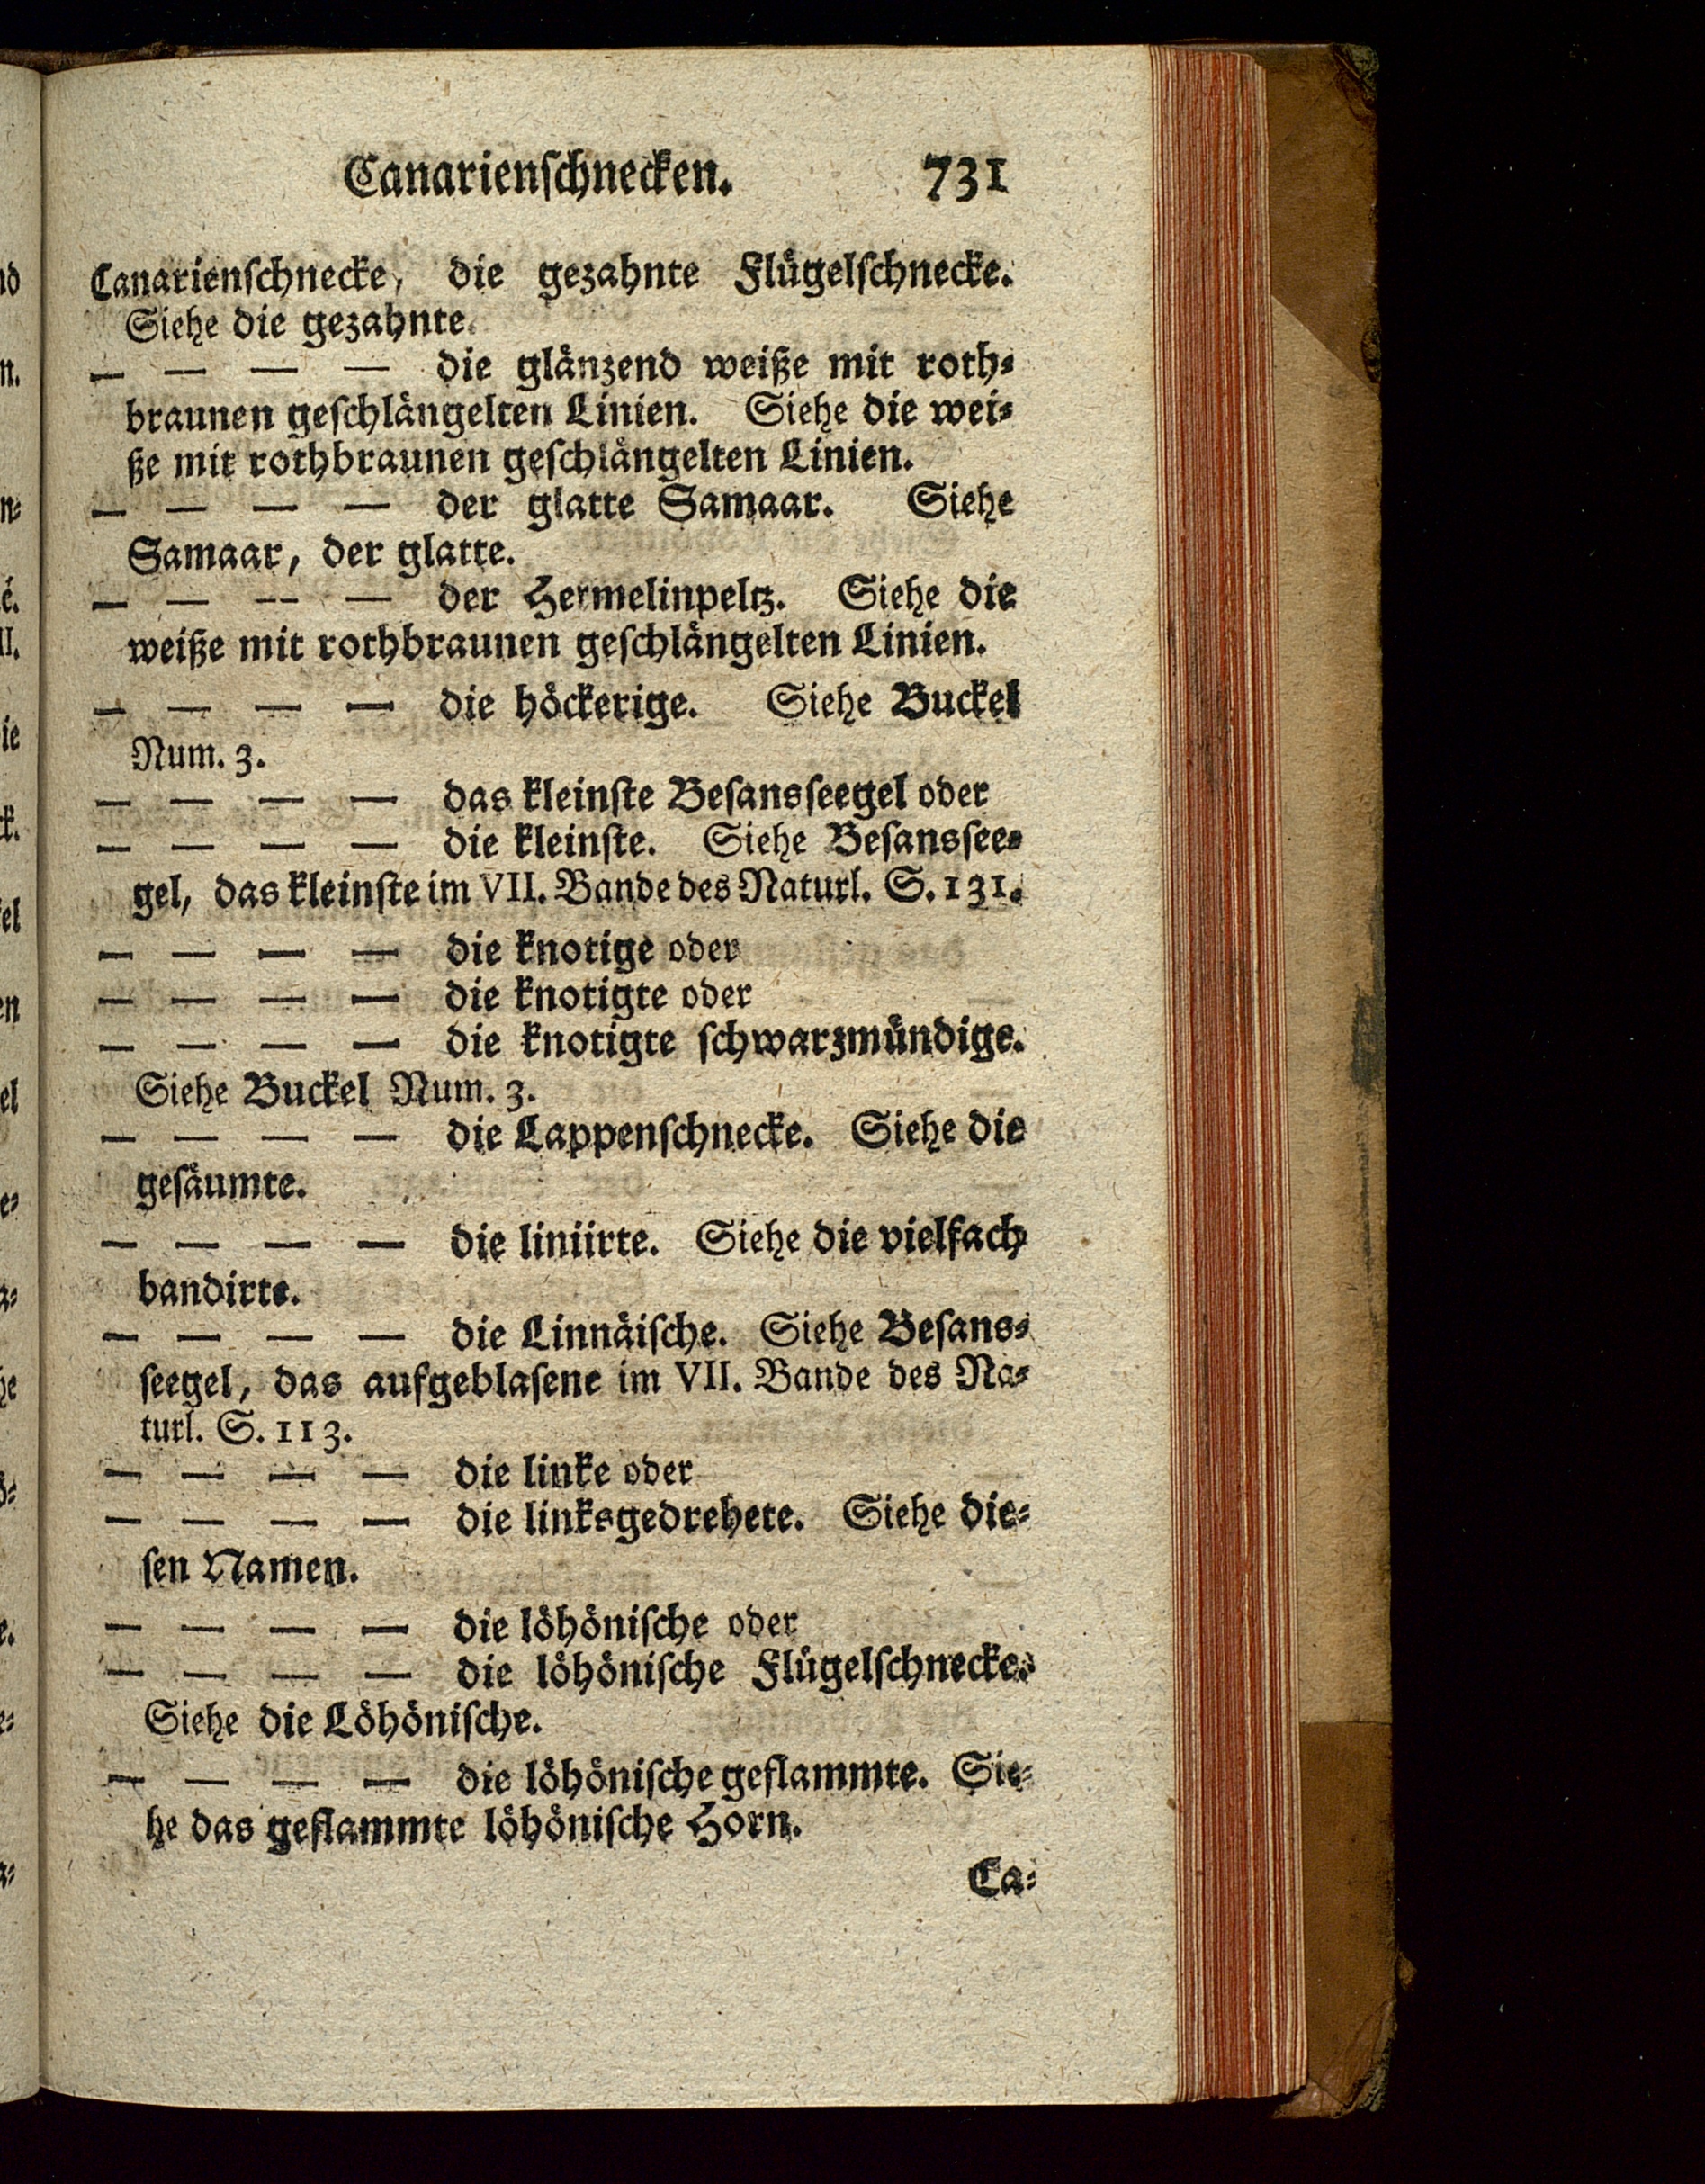 Canarienſchnecken. 731
Canarienſchnecke, die gezahnte Flügelſchnecke.
Siehe die gezahnte.
— — — — die glänzend weiße mit roth⸗
braunen geſchlängelten Linien. Siehe die wei⸗
ße mit rothbraunen geſchlängelten Linien.
— — — — der glatte Samaar. Siehe
Samaar, der glatte.
— — — — der Hermelinpeltz. Siehe die
weiße mit rothbraunen geſchlängelten Linien.
— — — — die höckerige. Siehe Buckel
Num. 3.
— — — — das kleinſte Beſansſeegel oder
— — — — die kleinſte. Siehe Beſansſee⸗
gel, das kleinſte im VII. Bande des Naturl. S. 131.
— — — — die knotige oder
— — — — die knotigte oder
— — — — die knotigte ſchwarzmündige.
Siehe Buckel Num. 3.
— — — — die Lappenſchnecke. Siehe die
geſäumte.
— — — — die liniirte. Siehe die vielfach
bandirte.
— — — — die Linnäiſche. Siehe Beſans⸗
ſeegel, das aufgeblaſene im VII. Bande des Na⸗
turl. S. 113.
— — — — die linke oder
— — — — die linksgedrehete. Siehe die⸗
ſen Namen.
— — — — die löhöniſche oder
— — — — die löhöniſche Flügelſchnecke.
Siehe die Löhöniſche.
— — — — die löhöniſche geflammte. Sie⸗
he das geflammte löhöniſche Horn.
Ca⸗